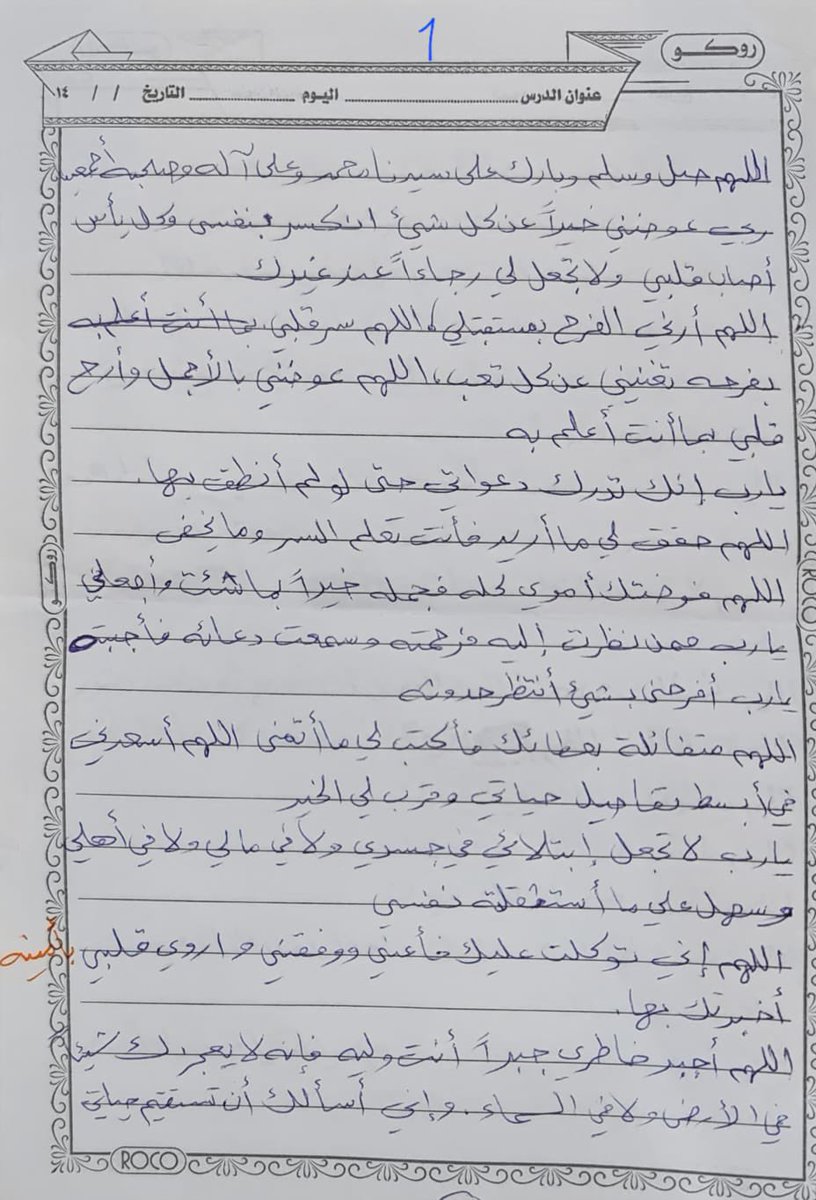 1
روكو
عنوان الدرس اليوم التاريخ / / ١٤
اللهم صل وسلم وبارك على سيدنا محمد وعلى آله وصحبه أجمعين
ربي عوضني خيراً عن كل شيئ انكسر بنفسي وكل يأس
أصاب قلبي ولا تجعل لي رجاءاً عند غيرك
اللهم أرني الفرح بمستقبلي، اللهم سر قلبي بما أنت أعلم به
بفرحه تغنيني عن كل تعب، اللهم عوضني بالأجمل وأرح
قلبي بما أنت أعلم به
يارب إنك تدرك دعواتي حتى لو لم أنطق بها.
اللهم حقق لي ما أريد فأنت تعلم السر وما يخفى
اللهم فوضتك أموري كله فجمله خيراً بما شئت وأجعلني
يارب ممن نظرت إليه فرحمته وسمعت دعائه فأجبته
يارب أفرحني بشيئ أنتظر حدوثه
اللهم متفائلة بعطائك فأكتب لي ما أتمنى اللهم أسعدني
في أبسط تفاصيل حياتي وقرب لي الخير
يارب لا تجعل إبتلائي في جسدي ولا في مالي ولا في أهلي
وسهل علي ما أستثقلته نفسي
اللهم إني توكلت عليك فأعني ووفقني و اروي قلبي
أخبرتك بها.
اللهم أجبر خاطري جبراً أنت وليه فإنه لا يعجزك شيئ
في الأرض ولا في السماء. وإني أسألك أن تستقيم حياتي
روكو
ROCO
ROCO